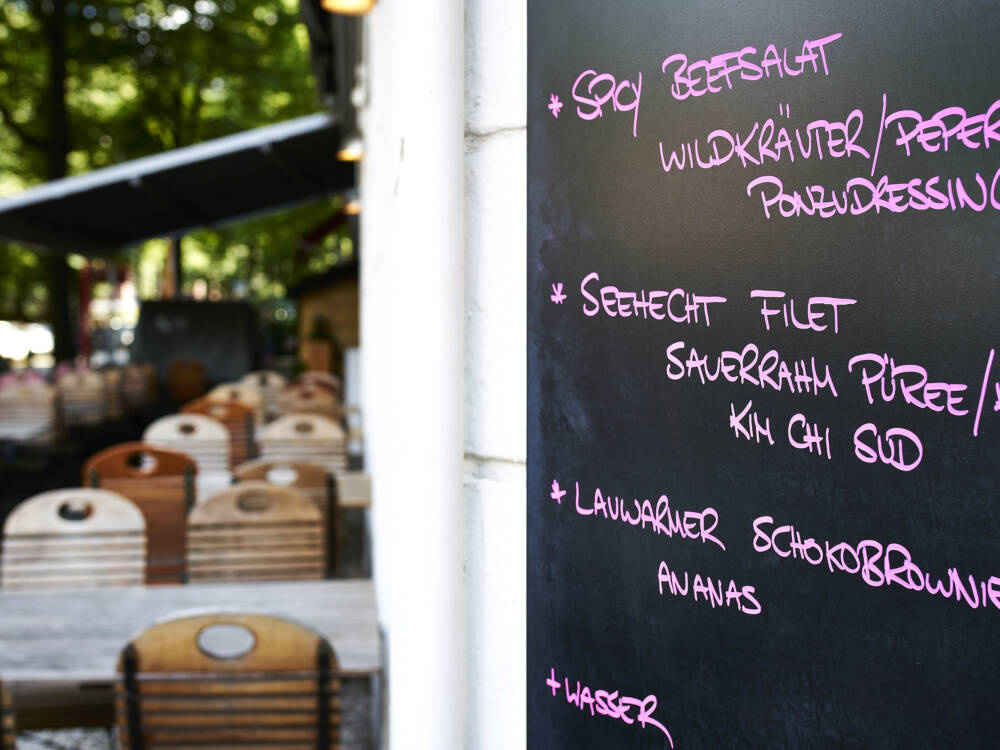 * SPICY BEEFSALAT
WILDKRÄUTER/PEPER
PONZUDRESSING
* SEEHECHT FILET
SAUERRAHM PÜREE/
KIM CHI SUD
* LAUWARMER SCHOKOBROWNIE
ANANAS
+ WASSER